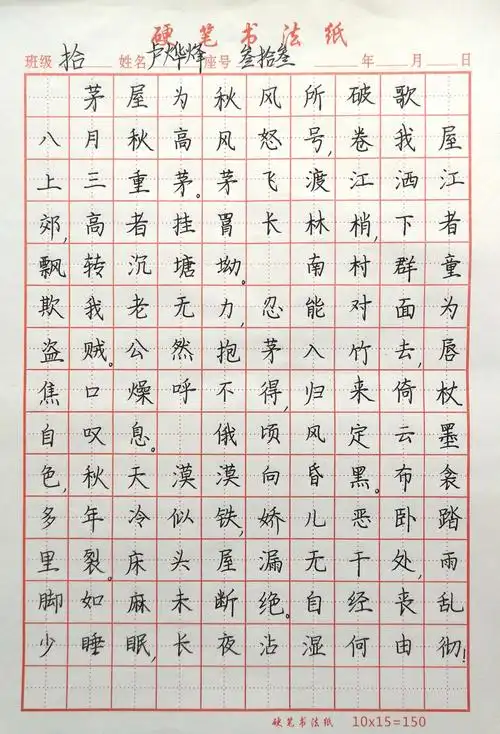 硬笔书法纸
班级 拾 姓名 卢烨烽 座号 叁拾叁 年 月 日
茅屋为秋风所破歌
八月秋高风怒号,卷我屋
上三重茅。茅飞渡江洒江
郊,高者挂罥长林梢,下者
飘转沉塘坳。 南村群童
欺我老无力,忍能对面为
盗贼。公然抱茅入竹去,唇
焦口燥呼不得,归来倚杖
自叹息。 俄顷风定云墨
色,秋天漠漠向昏黑。布衾
多年冷似铁,娇儿恶卧踏
里裂。床头屋漏无干处,雨
脚如麻未断绝。自经丧乱
少睡眠,长夜沾湿何由彻!
硬笔书法纸 10x15=150